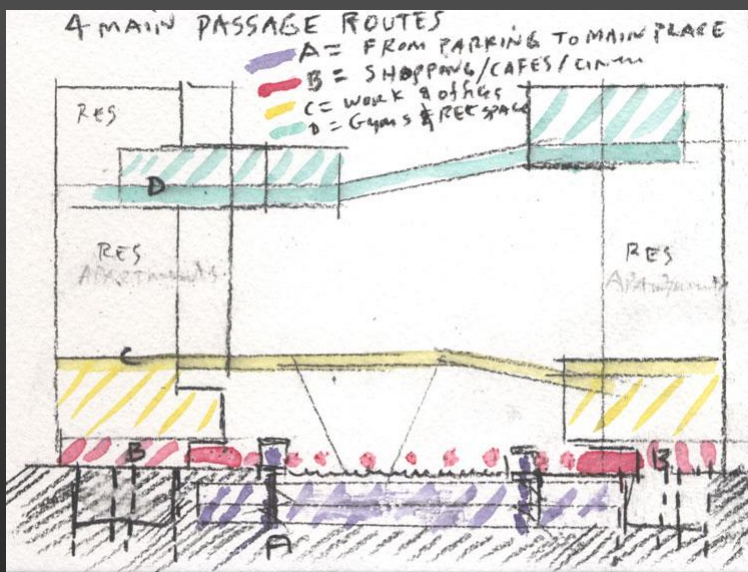 4 MAIN PASSAGE ROUTES
A = FROM PARKING TO MAIN PLACE
B = SHOPPING/CAFES/CINEMA
C = WORK & offices
D = Gyms & REK SPACE
RES
D
RES
APARTMENTS
RES
Apartments
C
B
B
A